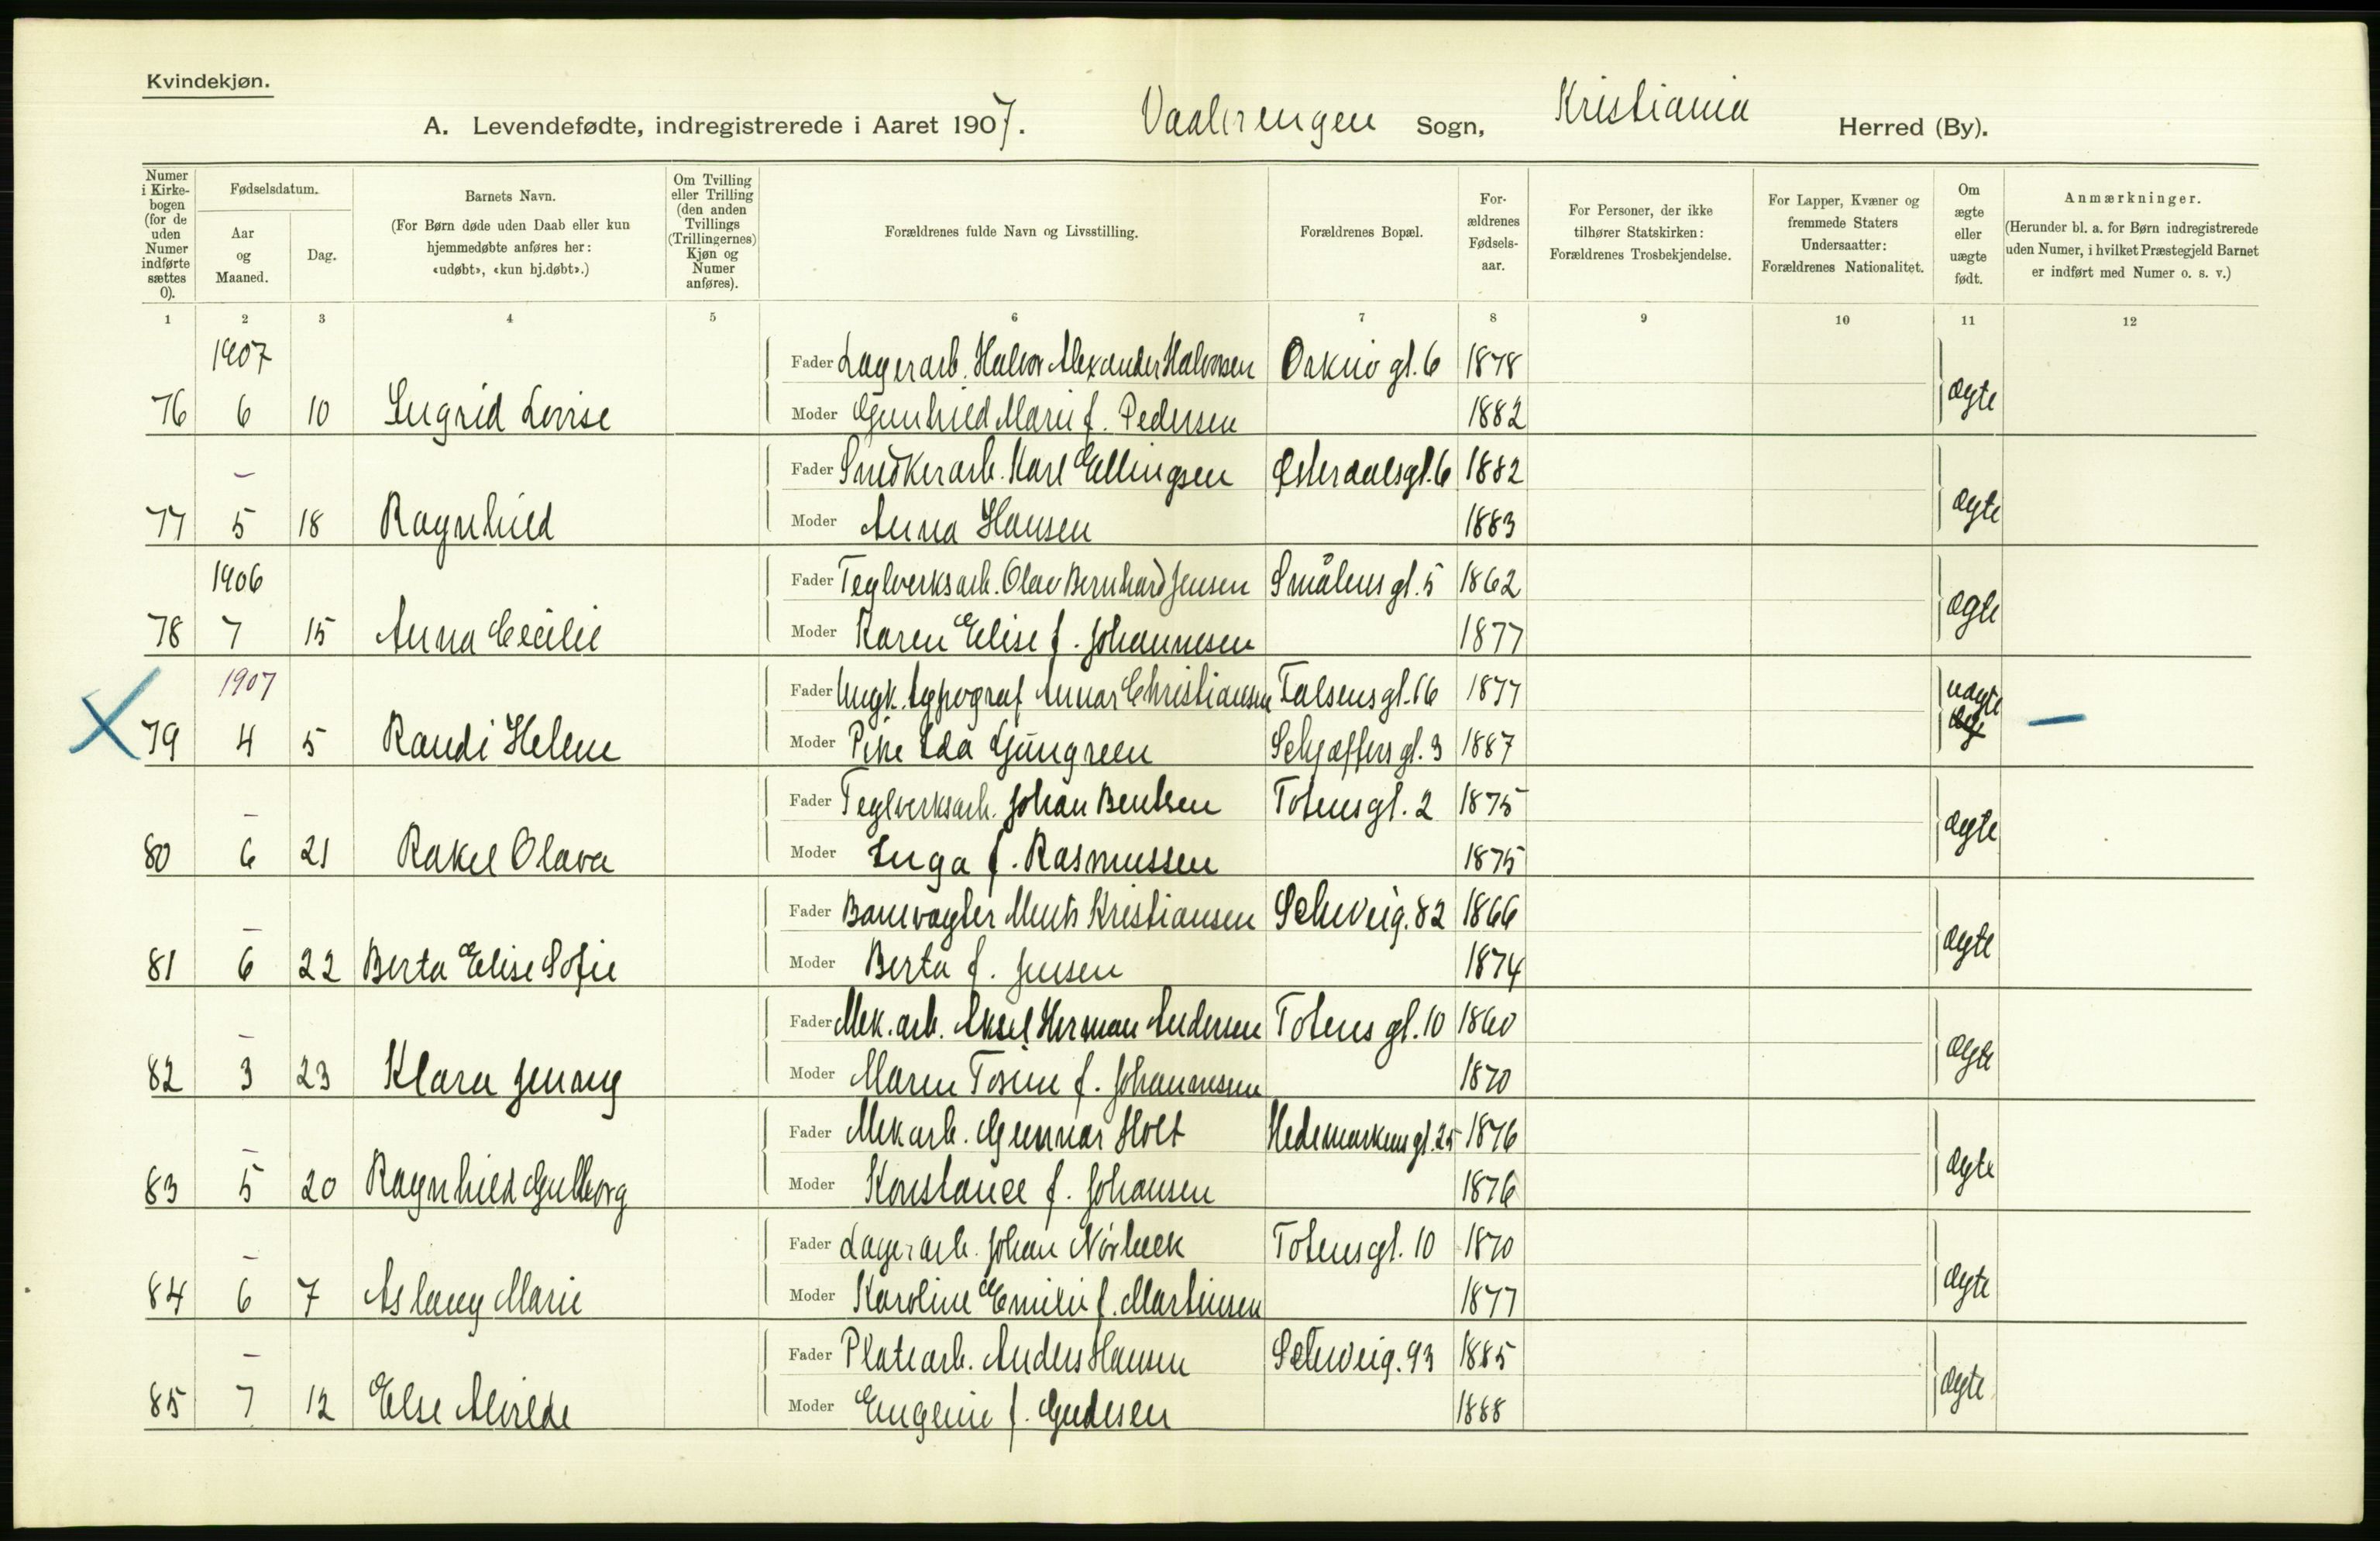 Kvindekjøn.
A. Levendefødte, indregistrerede i Aaret 1907. Vaalerengen Sogn, Kristiania Herred (By).
Numer i Kirkebogen (for de uden Numer indførte sættes 0).
Fødselsdatum.
Aar og Maaned.
Dag.
Barnets Navn.
(For Børn døde uden Daab eller kun hjemmedøbte anføres her: «udøbt», «kun hj.døbt».)
Om Tvilling eller Trilling (den anden Tvillings (Trillingernes) Kjøn og Numer anføres).
Forældrenes fulde Navn og Livsstilling.
Forældrenes Bopæl.
Forældrenes Fødselsaar.
For Personer, der ikke tilhører Statskirken: Forældrenes Trosbekjendelse.
For Lapper, Kvæner og fremmede Staters Undersaatter: Forældrenes Nationalitet.
Om ægte eller uægte født.
Anmærkninger.
(Herunder bl. a. for Børn indregistrerede uden Numer, i hvilket Præstegjeld Barnet er indført med Numer o. s. v.)
1 2 3 4 5 6 7 8 9 10 11 12
1907 Fader Lagerarb. Halvor Alexander Halvorsen Orknø gt. 6 1878
76 6 10 Ingrid Lovise Moder Gunhild Marie f. Pedersen 1882 ægte
– Fader Snedkerarb. Karl Ellingsen Østerdalsgt. 6 1882
77 5 18 Ragnhild Moder Anna Hansen 1883 ægte
1906 Fader Teglverksarb. Olav Bernhard Jensen Smålens gt. 5 1862
78 7 15 Anna Cecilie Moder Karen Elise f. Johannesen 1877 ægte
1907 Fader Ungk. typograf Annar Christiansen Falsens gt. 16 1877 uægte
79 4 5 Randi Helene Moder Pike Ida Ljungreen Schjøffers gt. 3 1887 –
– Fader Teglverksarb. Johan Bentsen Totens gt. 2 1875
80 6 21 Rakel Olava Moder Inga f. Rasmussen 1875 ægte
– Fader Banevogter Ments Kristiansen Schweig. 82 1866
81 6 22 Berta Elise Sofie Moder Berta f. Jensen 1874 ægte
– Fader Mek. arb. Aksel Herman Andersen Totens gt. 10 1860
82 3 23 Klara Jenany Moder Maren Tosine f. Johannesen 1870 ægte
– Fader Mek arb. Gunnar Holt Hedemarkens gt. 25 1876
83 5 20 Ragnhild Gulborg Moder Konstance f. Johansen 1876 ægte
– Fader Lagerarb. Johan Nörbeck Totens gt. 10 1870
84 6 7 Aslaug Marie Moder Karoline Emilie f. Martinsen 1877 ægte
– Fader Platearb. Anders Hansen Schweig. 93 1885
85 7 12 Else Alvilde Moder Eugenie f. Gudesen 1888 ægte